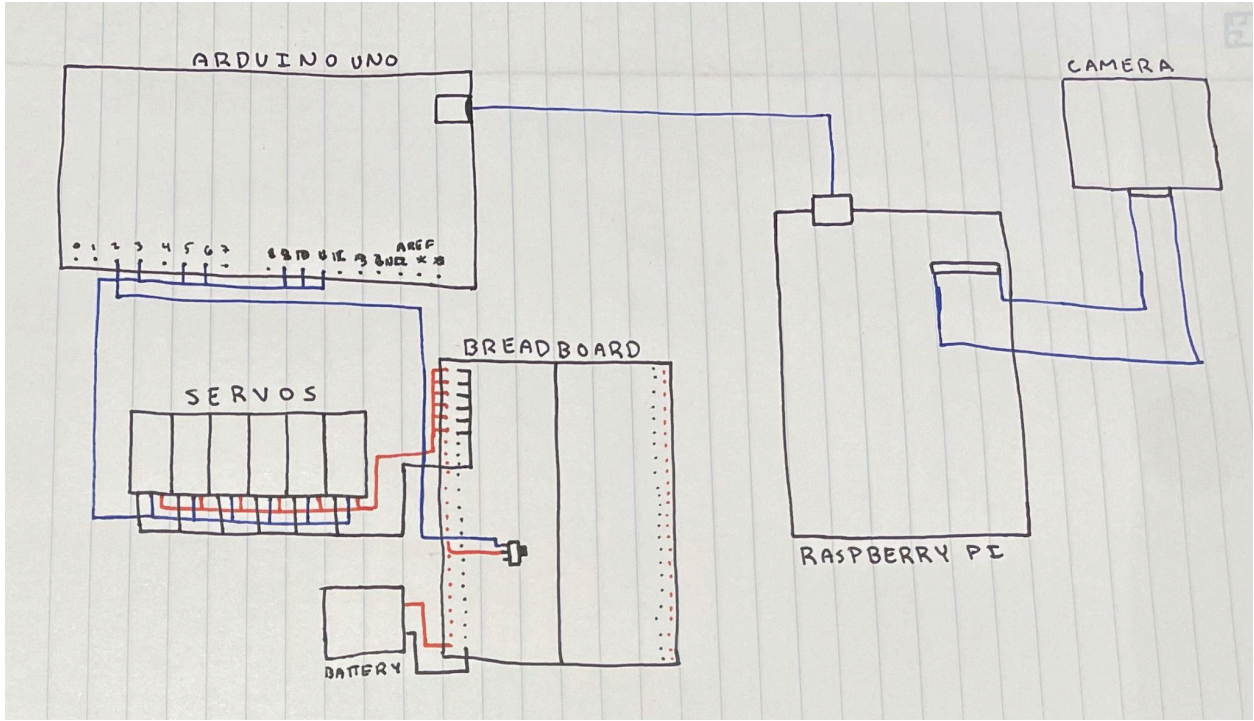 ARDUINO UNO
CAMERA
0 1 2 3 4 5 6 7
AREF
BREADBOARD
SERVOS
RASPBERRY PI
BATTERY